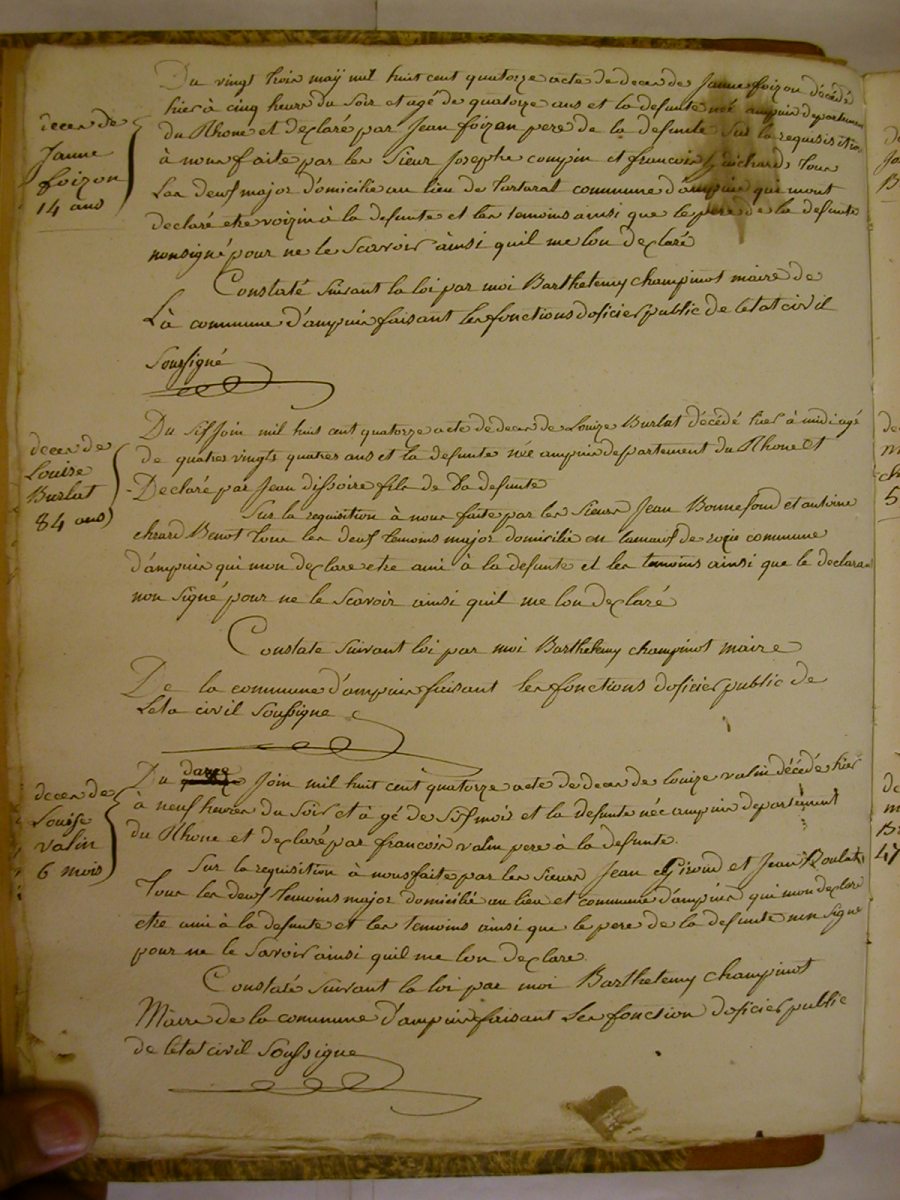 Du vingt trois maÿ mil huit cent quatorze acte de deces de Janne foizon décédé
hier à cinq heurs du Soir et agé de quatorze ans et la defunte née ampuis departement
du Rhone et declaré par Jean foizon pere de la defunte Sur la requisition
à nous faite par les Sieur Josephe compin et francois Guichard, tous
Les deux major domicilie au lieu de tartarat commune d'ampuis qui mont
declaré etre voizin à la defunte et les temoins ainsi que le pere de la defunte
non signé pour ne le Scavoir ainsi quil me lon declaré
deces de
Janne
foizon
14 ans
Constaté Suivant la loi par moi Barthelemy champinot maire de
Là commune d'ampuis faisant les fonctions doficier public de letat civil
Soussigné
Du Six Join mil huit cent quatorze acte de deces de Louize Burlat décédé hier à midi agé
de quatres vingts quatres ans et la defunte née ampuis departement du Rhone et
Declaré par Jean dissoire fils de La defunte
deces de
Louise
Burlat
84 ans
Sur la requisition à nous faite par les Sieurs Jean Bonnefond et antoine
Benot tous les deux temoins major domicilié en commune
d'ampuis qui mon declare etre ami à la defunte et les temoins ainsi que le declarant
non Signé pour ne le Scavoir ainsi quil me lon declaré
Constate Suivant loi par moi Barthelemy champinot maire
De la commune d'ampuis faisant les fonctions doficier public de
Leta civil Soussigne
Du douze Join mil huit cent quatorze acte de deces de Louize valin décédé hier
à neuf heures du Soir et à gé de Six mois et la defunte née ampuis departement
du Rhône et declaré par francois valin pere à la defunte
deces de
Louise
valin
6 mois
Sur la requisition à nous faite par les Sieurs Jean Giroud et Jean Roulat
Tous les deux temoins major domicilié au lieu et commune d'ampuis qui mon declare
etre ami à la defunte et les temoins ainsi que le pere de la defunte non Signe
pour ne le Savoir ainsi quil me lon declare
Constaté Suivant la loi par moi Barthelemy champinot
Maire de la commune d'ampuis faisant Les fonction doficier public
de letat civil Soussigne